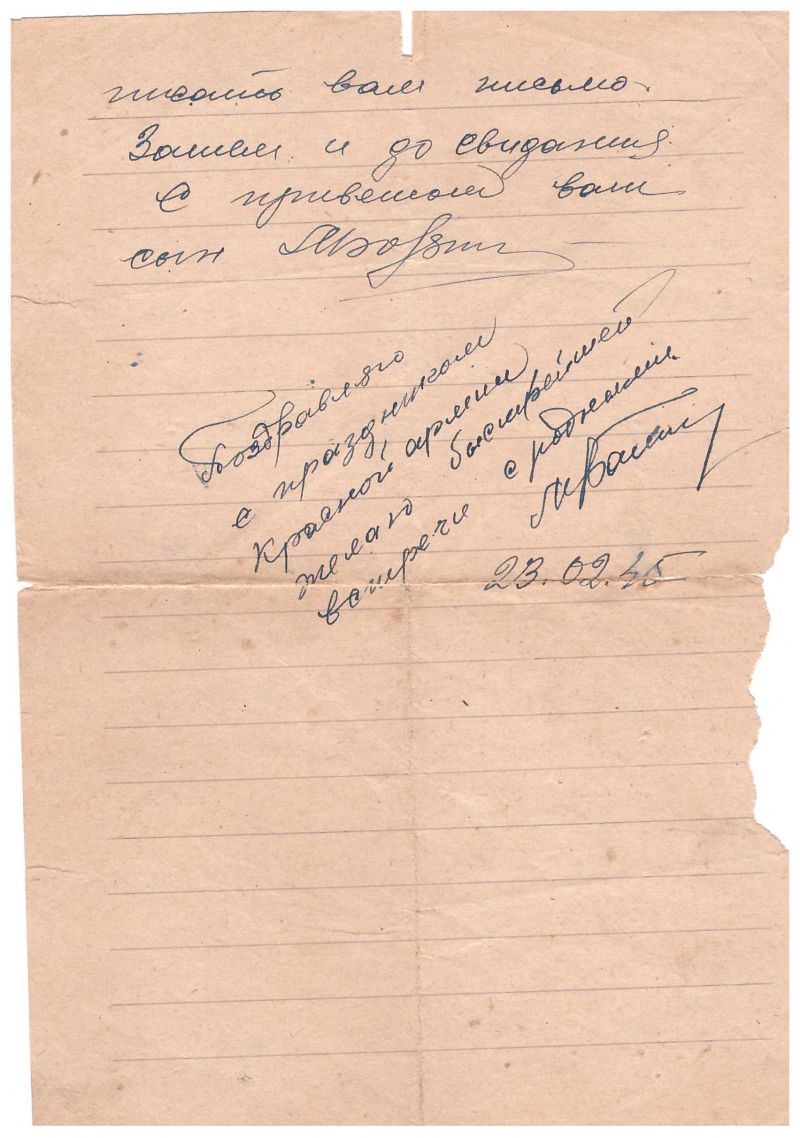 писать вам письмо.
Затем и до свидания
С приветом ваш
сын
Поздравляю
с праздником
Красной армии
желаю быстрейшей
встречи с родными.
23.02.45